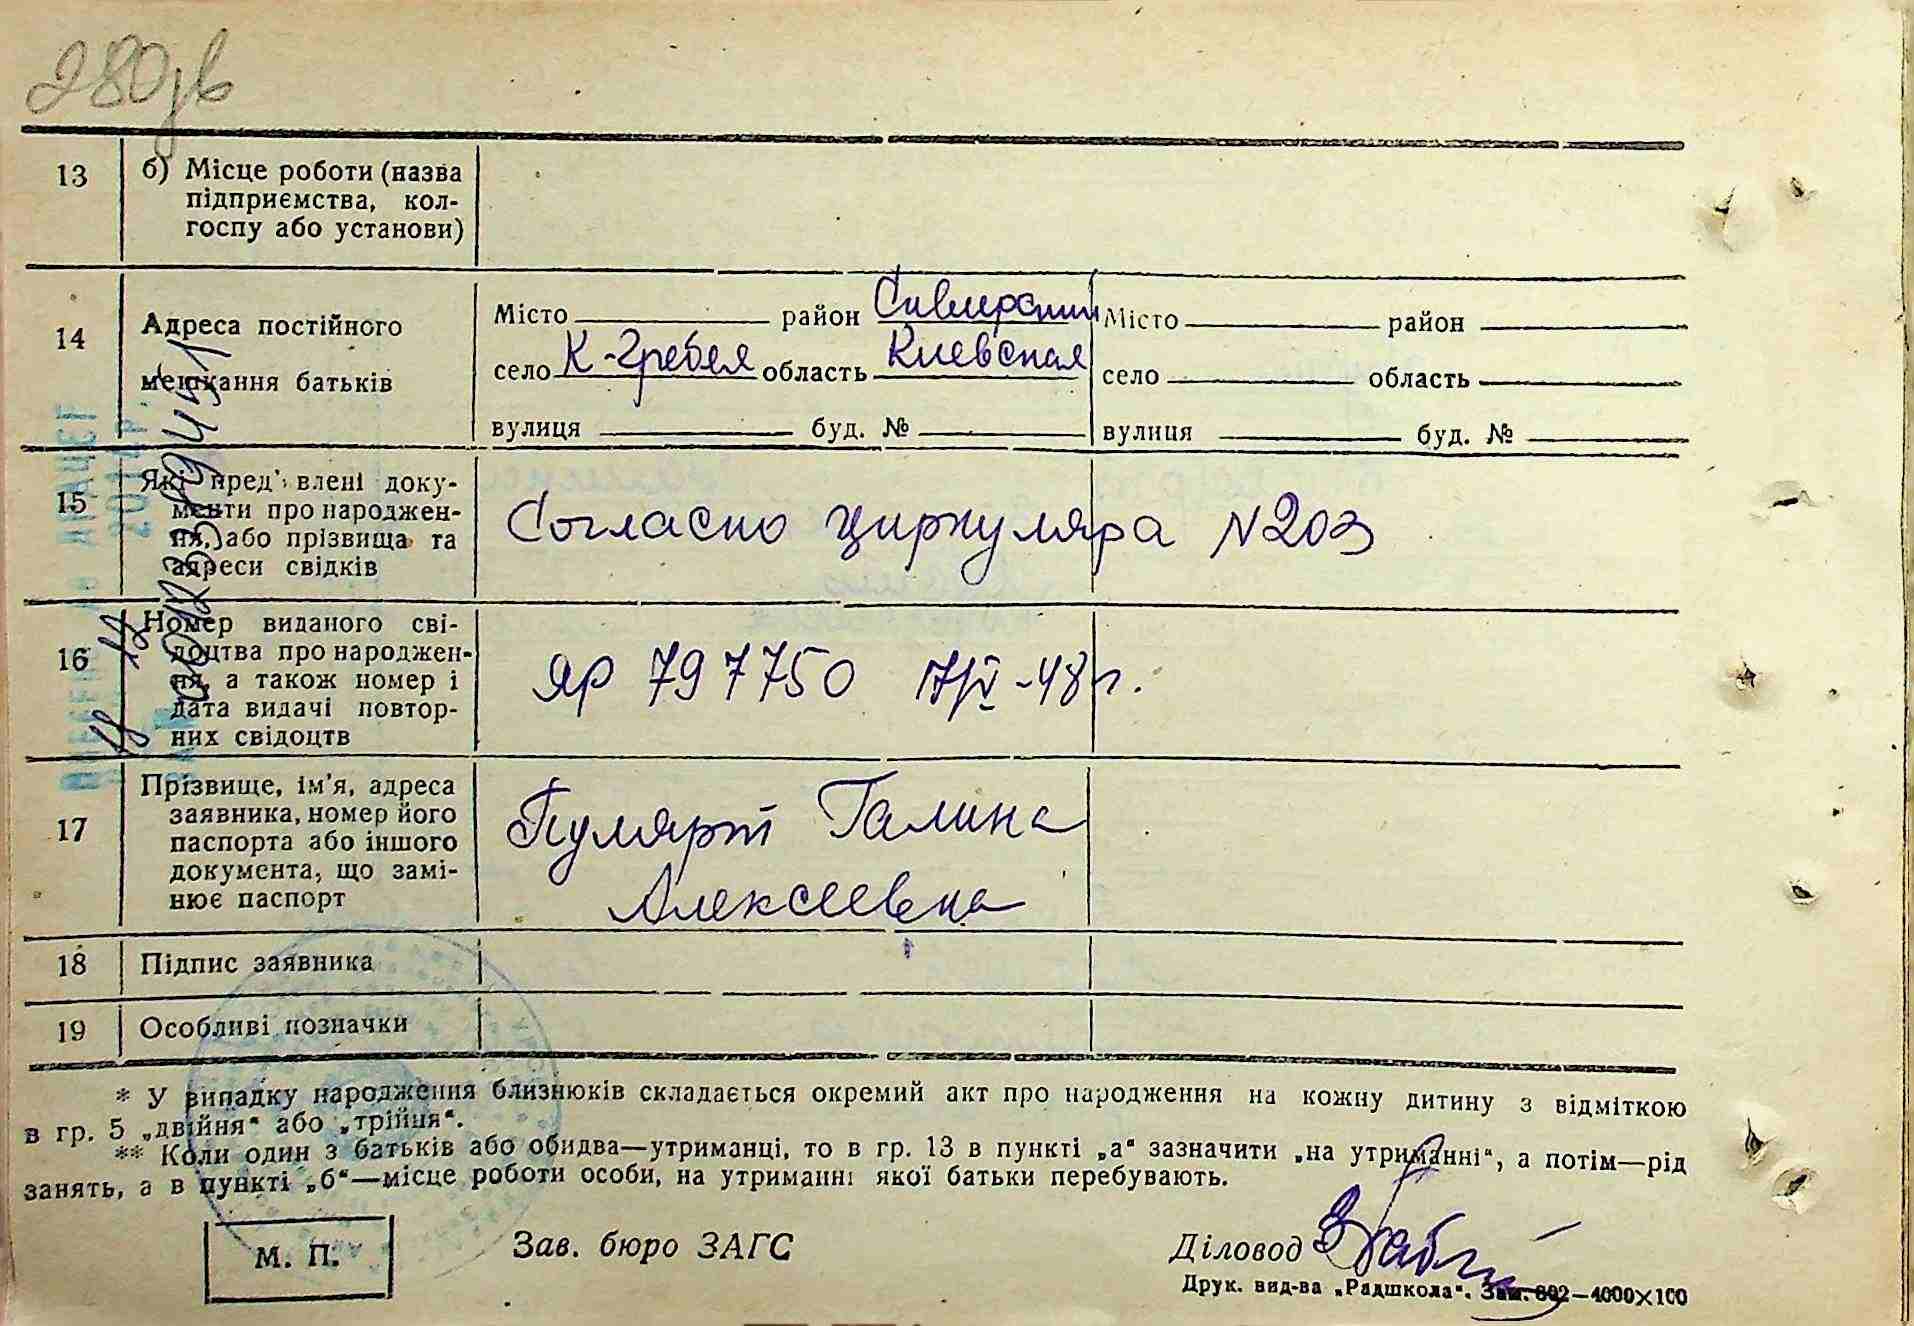 280 зв
13 б) Місце роботи (назва
підприємства, кол-
госпу або установи)
14 Адреса постійного
мешкання батьків
Місто район Сквирский
село К-Гребея область Киевская
вулиця буд. №
Місто район
село область
вулиця буд. №
15 Які пред'явлені доку-
менти про народжен-
ня, або прізвища та
адреси свідків
Согласно циркуляра N 203
16 Номер виданого сві-
доцтва про народжен-
ня, а також номер і
дата видачі повтор-
них свідоцтв
ЯР 797750 17/V-48 г.
17 Прізвище, ім'я, адреса
заявника, номер його
паспорта або іншого
документа, що замі-
нює паспорт
Галина
Алексеевна
18 Підпис заявника
19 Особливі позначки
* У випадку народження близнюків складається окремий акт про народження на кожну дитину з відміткою
в гр. 5 „двійня“ або „трійня“.
** Коли один з батьків або обидва—утриманці, то в гр. 13 в пункті „а“ зазначити „на утриманні“, а потім—рід
занять, а в пункті „б“—місце роботи особи, на утриманні якої батьки перебувають.
М. П.
Зав. бюро ЗАГС
Діловод
Друк. вид-ва „Радшкола“. Зам. 802—4000×100